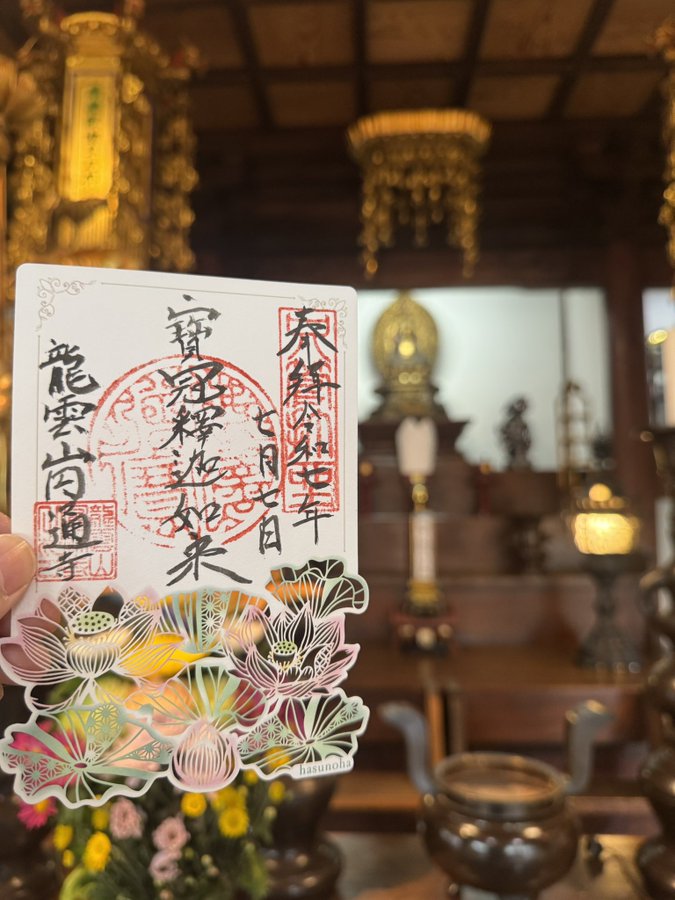 奉拝令和七年
七月七日
寶冠釋迦如来
龍雲山円通寺
hasunoha